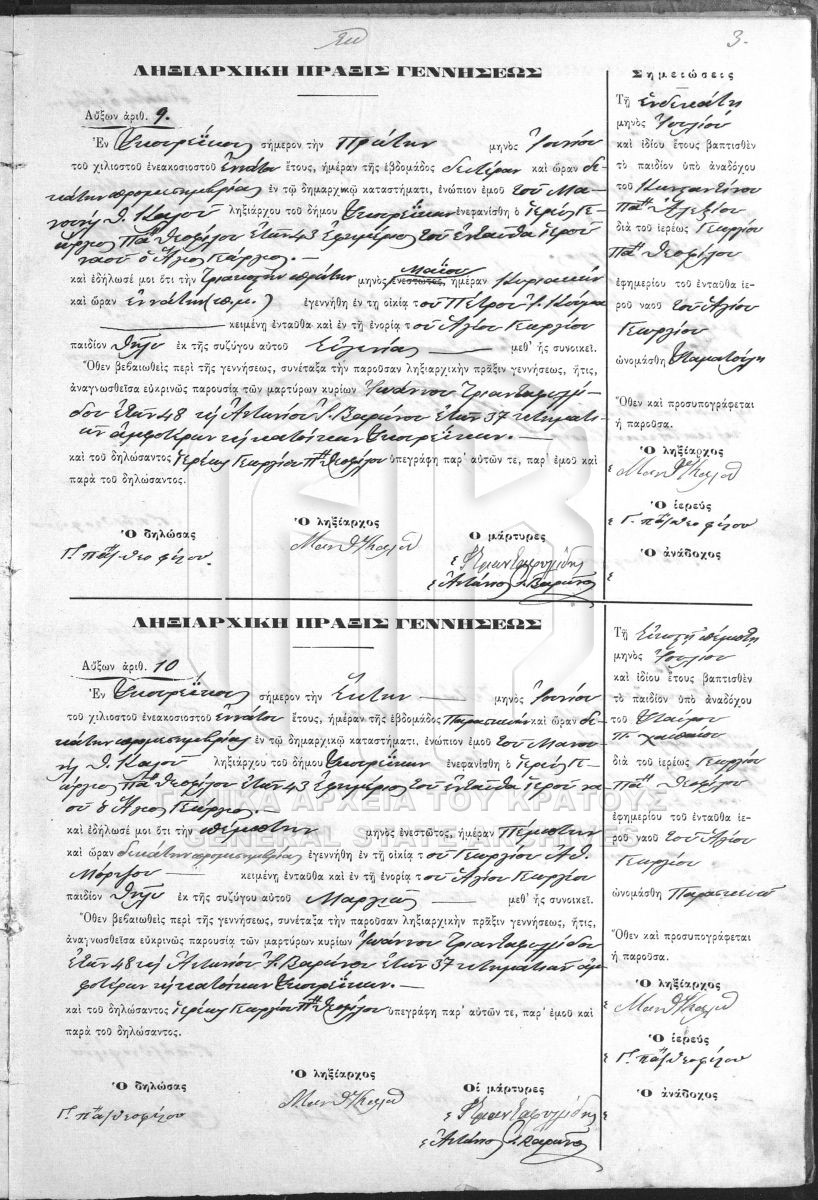 3.
ΛΗΞΙΑΡΧΙΚΗ ΠΡΑΞΙΣ ΓΕΝΝΗΣΕΩΣ
Αὔξων ἀριθ. 9.
Ἐν σήμερον τὴν Πρώτην μηνὸς Ἰουνίου
τοῦ χιλιοστοῦ ἐνεακοσιοστοῦ ἐννάτου ἔτους, ἡμέραν τῆς ἑβδομάδος Δευτέραν καὶ ὥραν δε-
κάτην προμεσημβρίας ἐν τῷ δημαρχικῷ καταστήματι, ἐνώπιον ἐμοῦ τοῦ Μα-
ληξιάρχου τοῦ δήμου ἐνεφανίσθη ὁ ἱερεὺς Γε-
ώργιος Παπᾶ Θεοφίλου ἐτῶν 43 ἐφημέριος τοῦ ἐνταῦθα ἱεροῦ
ναοῦ ὁ Ἅγιος Γεώργιος. —
καὶ ἐδήλωσέ μοι ὅτι τὴν τριακοστὴν πρώτην μηνὸς ἐνεστῶτος, Μαΐου ἡμέραν Κυριακὴν
καὶ ὥραν ἐννάτην (π.μ.) ἐγεννήθη ἐν τῇ οἰκίᾳ τοῦ Πέτρου
κειμένῃ ἐνταῦθα καὶ ἐν τῇ ἐνορίᾳ τοῦ Ἁγίου Γεωργίου
παιδίον θῆλυ ἐκ τῆς συζύγου αὐτοῦ Εὐγενίας μεθ' ἧς συνοικεῖ.
Ὅθεν βεβαιωθεὶς περὶ τῆς γεννήσεως, συνέταξα τὴν παροῦσαν ληξιαρχικὴν πρᾶξιν γεννήσεως, ἥτις,
ἀναγνωσθεῖσα εὐκρινῶς παρουσίᾳ τῶν μαρτύρων κυρίων Ἰωάννου Τριανταφυλλί-
δου ἐτῶν 48 καὶ Ἀντωνίου Βαρώνου ἐτῶν 37 κτηματι-
ῶν ἀμφοτέρων καὶ κατοίκων
καὶ τοῦ δηλώσαντος ἱερέως Γεωργίου Παπᾶ Θεοφίλου ὑπεγράφη παρ' αὐτῶν τε, παρ' ἐμοῦ καὶ
παρὰ τοῦ δηλώσαντος.
Ὁ δηλώσας
Γ. παπᾶ Θεοφίλου
Ὁ ληξίαρχος
Οἱ μάρτυρες
Ἀντώνιος Βαρώνος
Σημειώσεις
Τῇ ἑνδεκάτῃ
μηνὸς Ἰουλίου
καὶ ἰδίου ἔτους βαπτισθὲν
τὸ παιδίον ὑπὸ ἀναδόχου
τοῦ Κωνσταντίνου
Παπᾶ Ἀλεξίου
διὰ τοῦ ἱερέως Γεωργίου
Παπᾶ Θεοφίλου
ἐφημερίου τοῦ ἐνταῦθα ἱε-
ροῦ ναοῦ τοῦ Ἁγίου
Γεωργίου
ὠνομάσθη Σταματούλα
Ὅθεν καὶ προσυπογράφεται
ἡ παροῦσα.
Ὁ ληξίαρχος
Ὁ ἱερεὺς
Γ. παπᾶ Θεοφίλου
Ὁ ἀνάδοχος
ΛΗΞΙΑΡΧΙΚΗ ΠΡΑΞΙΣ ΓΕΝΝΗΣΕΩΣ
Αὔξων ἀριθ. 10
Ἐν σήμερον τὴν Ἕκτην μηνὸς Ἰουνίου
τοῦ χιλιοστοῦ ἐνεακοσιοστοῦ ἐννάτου ἔτους, ἡμέραν τῆς ἑβδομάδος Παρασκευὴν καὶ ὥραν δε-
κάτην προμεσημβρίας ἐν τῷ δημαρχικῷ καταστήματι, ἐνώπιον ἐμοῦ τοῦ
ληξιάρχου τοῦ δήμου ἐνεφανίσθη ὁ ἱερεὺς Γε-
ώργιος Παπᾶ Θεοφίλου ἐτῶν 43 ἐφημέριος τοῦ ἐνταῦθα ἱεροῦ να-
οῦ ὁ Ἅγιος Γεώργιος. —
καὶ ἐδήλωσέ μοι ὅτι τὴν πέμπτην μηνὸς ἐνεστῶτος, ἡμέραν Πέμπτην
καὶ ὥραν δεκάτην προμεσημβρίας ἐγεννήθη ἐν τῇ οἰκίᾳ τοῦ Γεωργίου Ἀθ.
κειμένῃ ἐνταῦθα καὶ ἐν τῇ ἐνορίᾳ τοῦ Ἁγίου Γεωργίου
παιδίον θῆλυ ἐκ τῆς συζύγου αὐτοῦ μεθ' ἧς συνοικεῖ.
Ὅθεν βεβαιωθεὶς περὶ τῆς γεννήσεως, συνέταξα τὴν παροῦσαν ληξιαρχικὴν πρᾶξιν γεννήσεως, ἥτις,
ἀναγνωσθεῖσα εὐκρινῶς παρουσίᾳ τῶν μαρτύρων κυρίων Ἰωάννου Τριανταφυλλίδου
ἐτῶν 48 καὶ Ἀντωνίου Βαρώνου ἐτῶν 37 κτηματιῶν ἀμ-
φοτέρων καὶ κατοίκων
καὶ τοῦ δηλώσαντος ἱερέως Γεωργίου Παπᾶ Θεοφίλου ὑπεγράφη παρ' αὐτῶν τε, παρ' ἐμοῦ καὶ
παρὰ τοῦ δηλώσαντος.
Ὁ δηλώσας
Γ. παπᾶ Θεοφίλου
Ὁ ληξίαρχος
Οἱ μάρτυρες
Ἀντώνιος Βαρώνος
Τῇ Εἰκοστῇ πέμπτῃ
μηνὸς Ἰουλίου
καὶ ἰδίου ἔτους βαπτισθὲν
τὸ παιδίον ὑπὸ ἀναδόχου
τοῦ Σταύρου
διὰ τοῦ ἱερέως Γεωργίου
Παπᾶ Θεοφίλου
ἐφημερίου τοῦ ἐνταῦθα ἱε-
ροῦ ναοῦ τοῦ Ἁγίου
Γεωργίου
ὠνομάσθη Παρασκευὴ
Ὅθεν καὶ προσυπογράφεται
ἡ παροῦσα.
Ὁ ληξίαρχος
Ὁ ἱερεὺς
Γ. παπᾶ Θεοφίλου
Ὁ ἀνάδοχος
ΓΕΝΙΚΑ ΑΡΧΕΙΑ ΤΟΥ ΚΡΑΤΟΥΣ
GENERAL STATE ARCHIVES